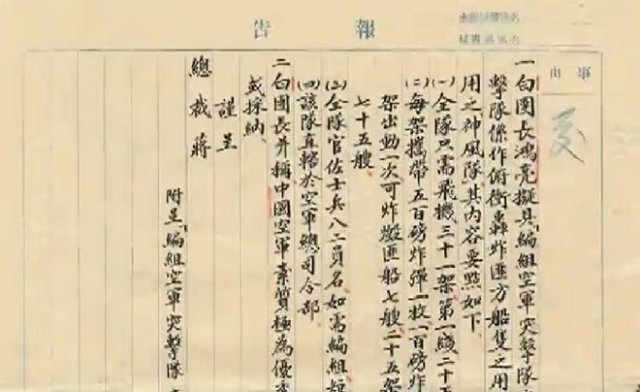 報告
事由
一白團長鴻亮擬具「編組空軍突擊隊
擊隊係作俯衝轟炸匪方船隻之用
用之神風隊其內容要點如下
㈠全隊只需飛機三十一架第一線二十
㈡每架攜帶五百磅炸彈一枚一百磅炸
架出動一次可炸燬匪船七艘二十五架
七十五艘
㈢全隊官佐士兵八二員名如需編組
㈣該隊直轄於空軍總司令部
二白團長并稱中國空軍素質極為優
或採納
謹呈
總裁蔣
附呈「編組空軍突擊隊